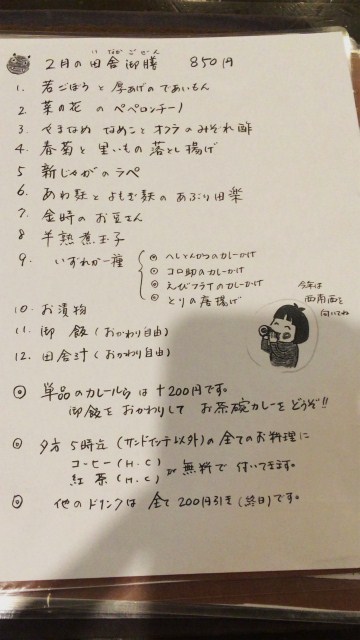 いなかごぜん
2月の田舎御膳 850円
1. 若ごぼうと厚あげのであいもん
2 菜の花のペペロンチーノ
3. やまなめなめことオクラのみぞれ酢
4. 春菊と里いもの落とし揚げ
5 新じゃがのラペ
6. あわ麩とよもぎ麩のあぶり田楽
7. 金時のお豆さん
8 半熟煮玉子
9. いずれか一種
へしとんかつのカレーかけ
コロ助のカレーかけ
えびフライのカレーかけ
とりの唐揚げ
10. お漬物
11. 御飯(おかわり自由)
12. 田舎汁(おかわり自由)
今年は
西南西を
向いてね
◎ 単品のカレールゥは+200円です。
御飯をおかわりしてお茶碗カレーをどうぞ!!
◎ 夕方5時迄(サンドイッチ以外)の全てのお料理に
コーヒー(H.C)
紅茶(H.C)
が無料で付いてきます。
◎ 他のドリンクは全て200円引き(終日)です。